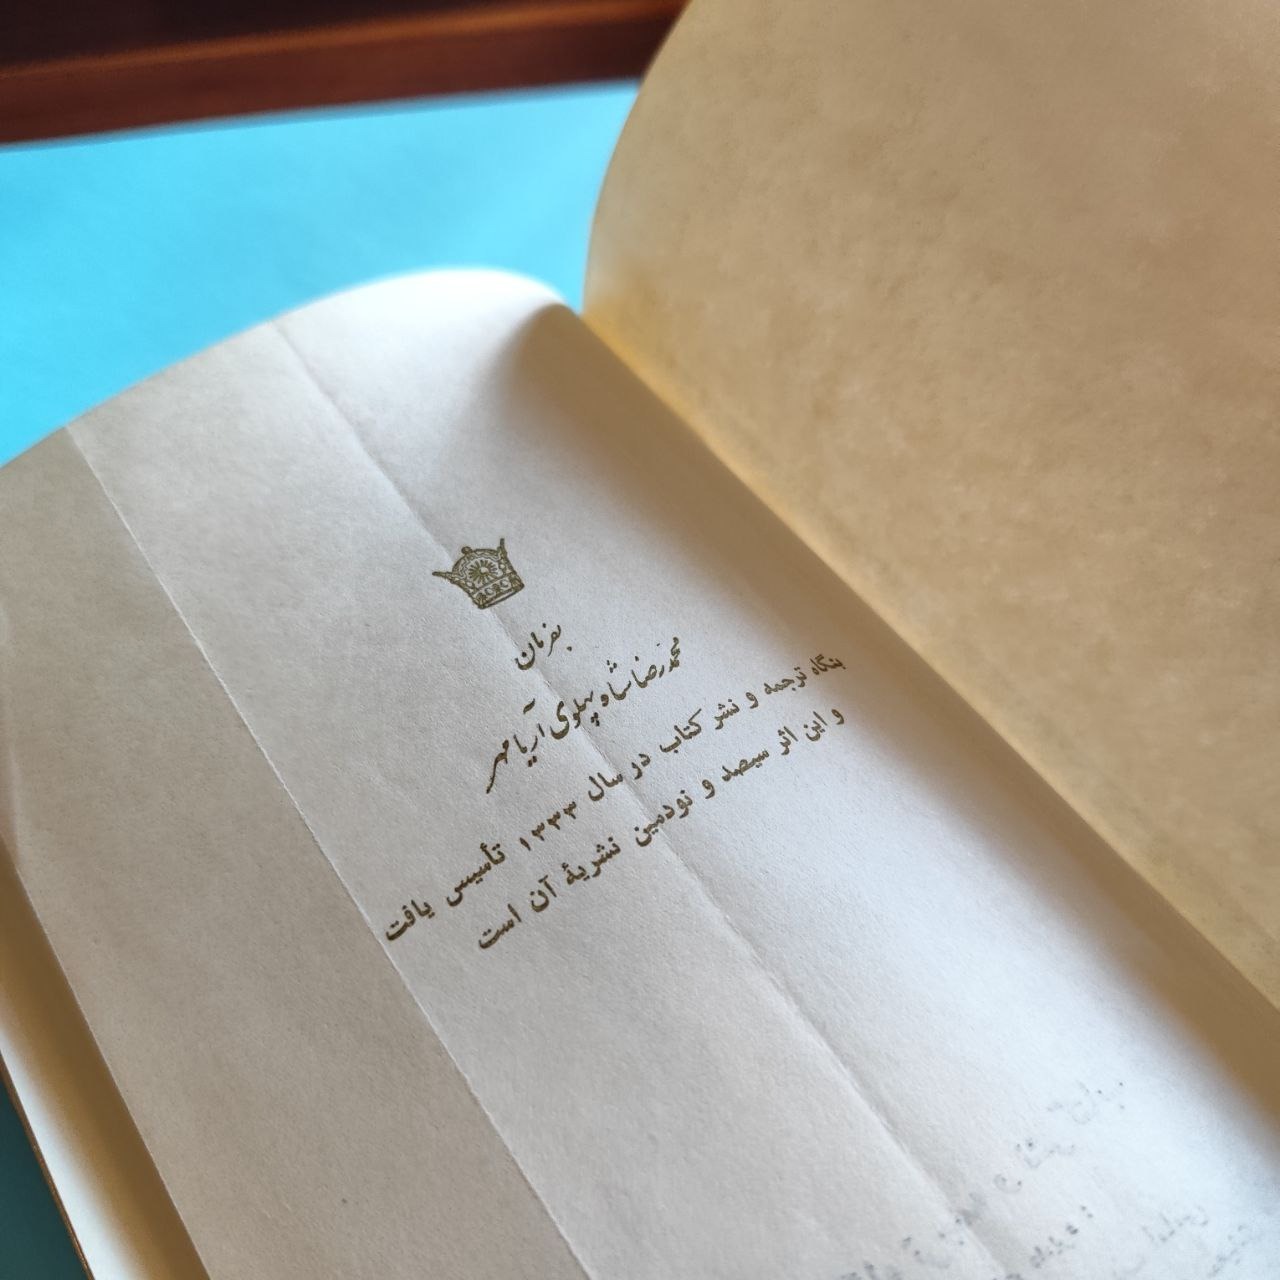 بفرمان
محمدرضا شاه پهلوی آریامهر
بنگاه ترجمه و نشر کتاب در سال ۱۳۳۳ تأسیس یافت
و این اثر سیصد و نودمین نشریهٔ آن است